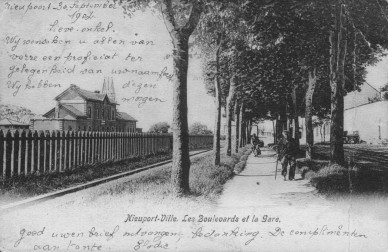 Nieupoort 30 September
1902
Lieve onkel.
Wij wenschen u allen van
voture een proficiat ter
gelegenheid van uw naamfeest
Wij hebben dezen
morgen
Nieuport-Ville. Les Boulevards et la Gare.
goed uwen brief ontvangen, bedanking. De complimenten
aan tante. Elodie!